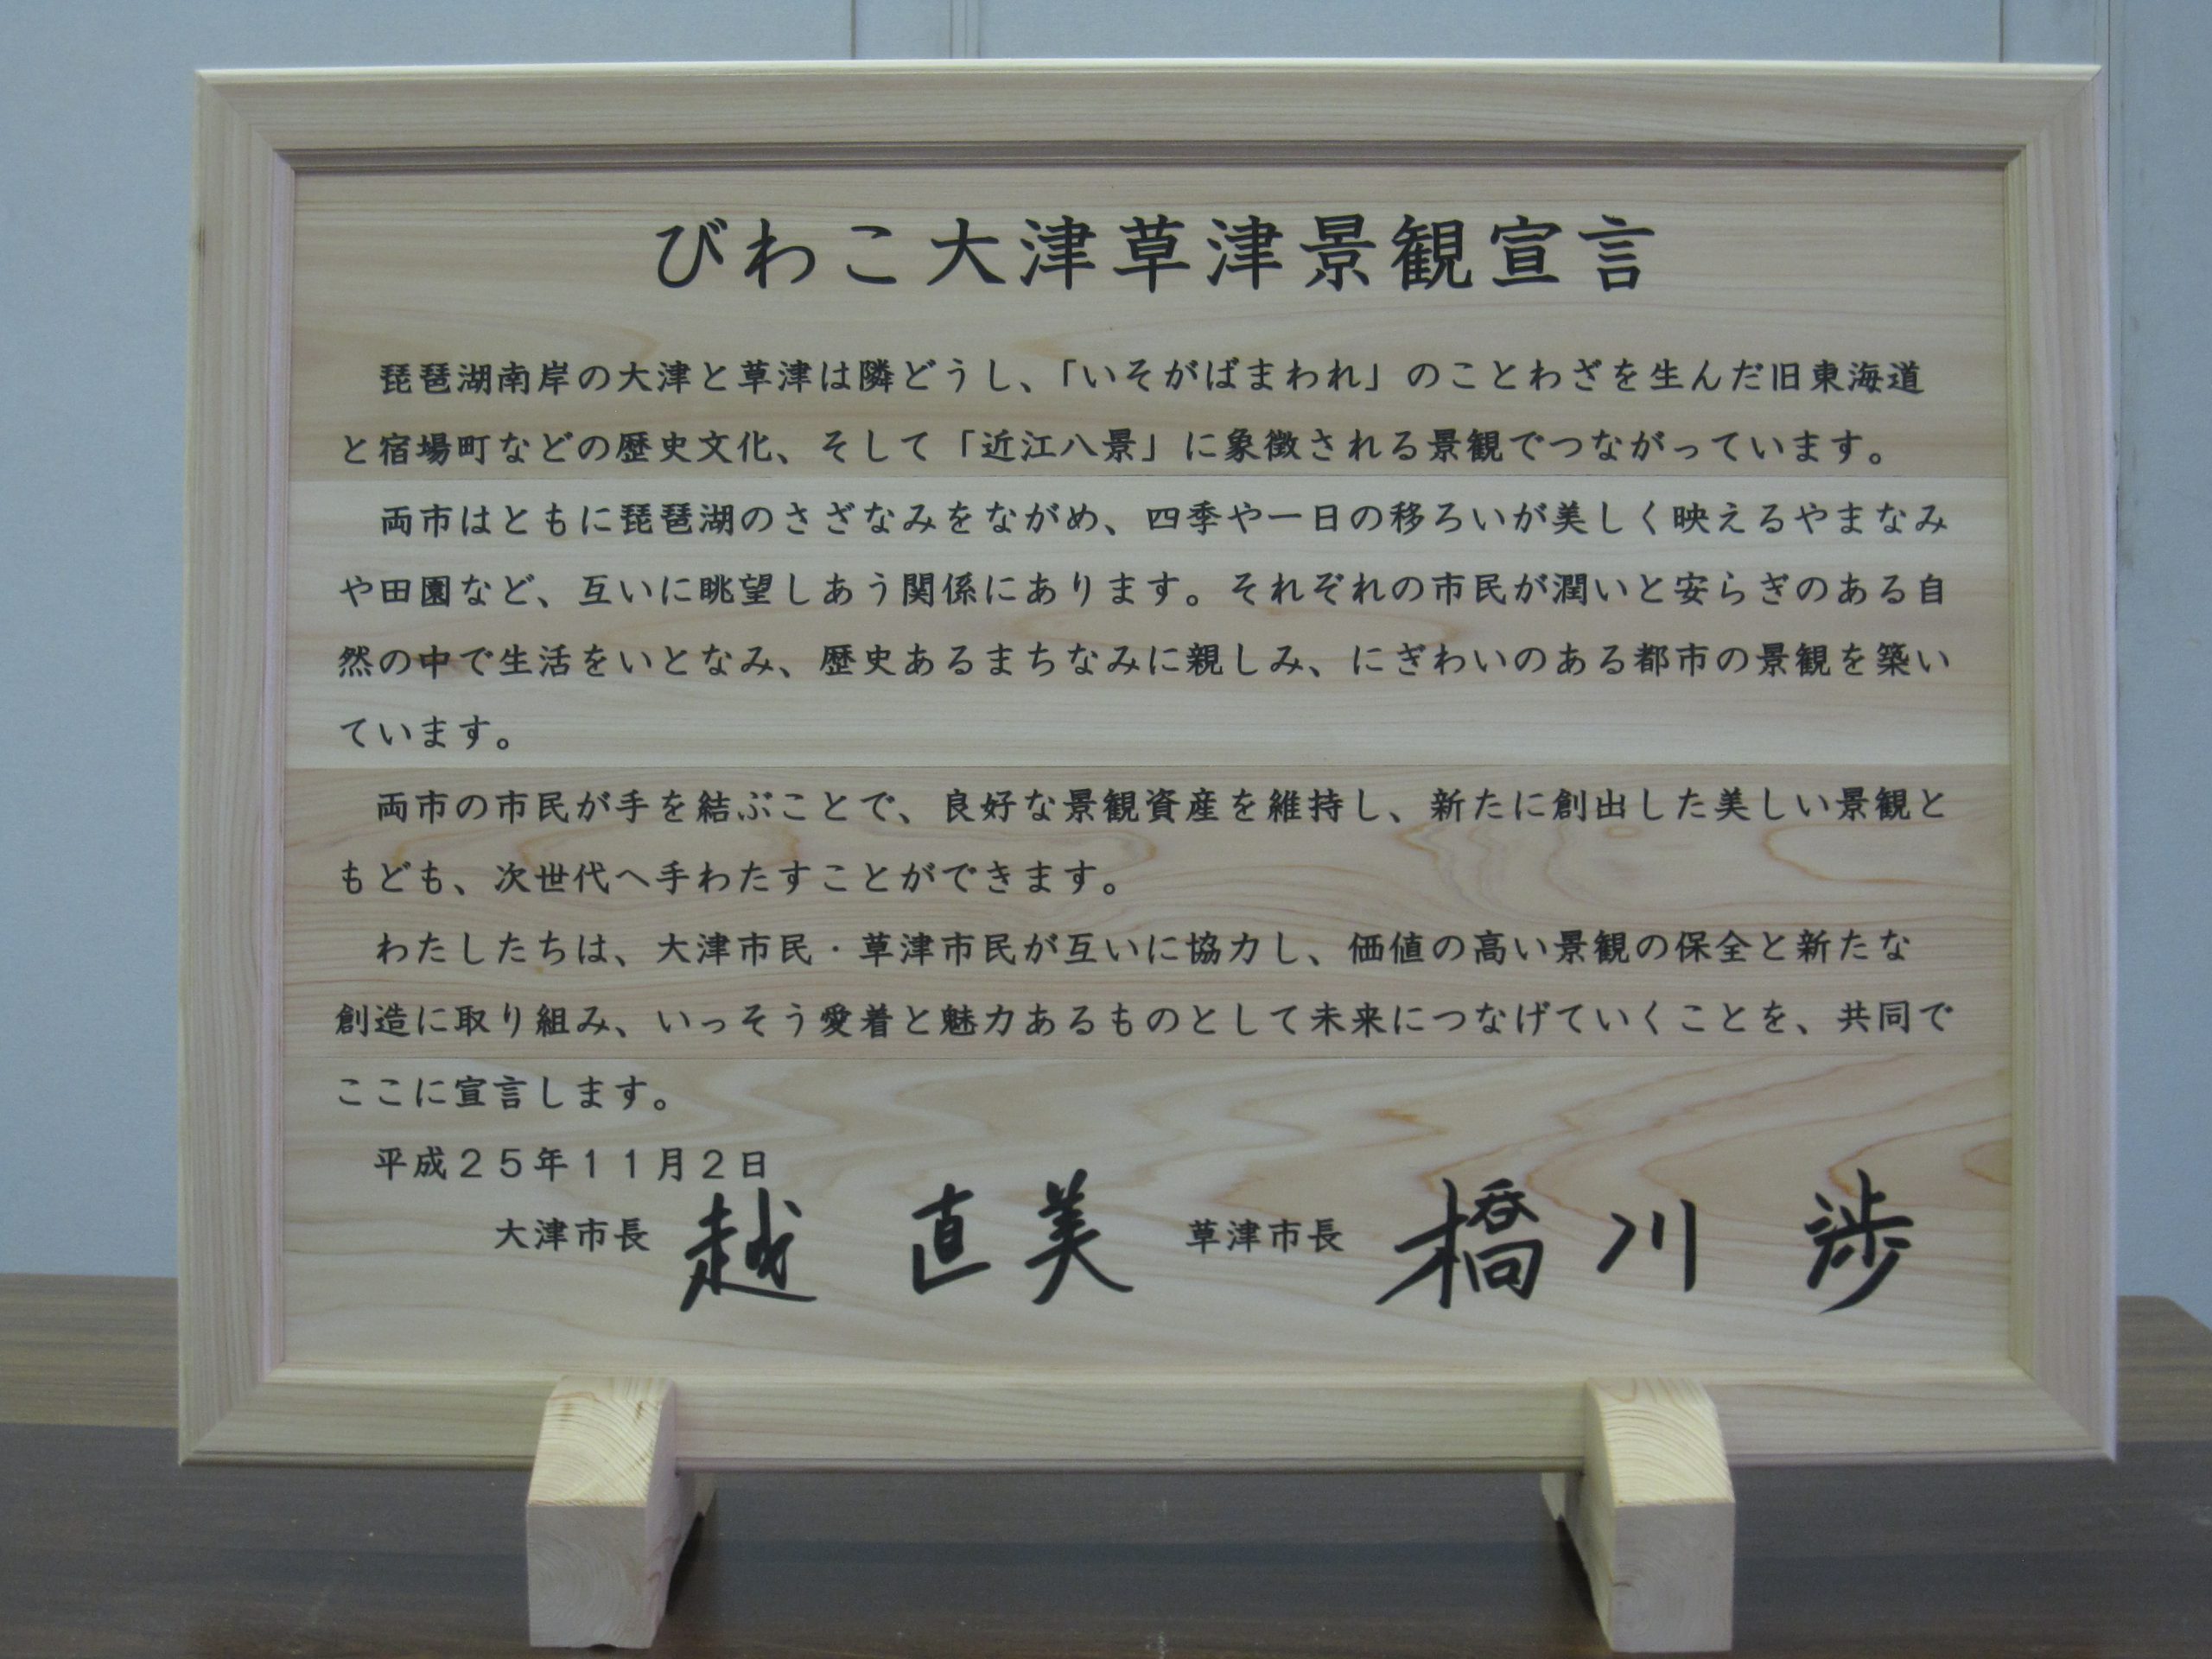 びわこ大津草津景観宣言
琵琶湖南岸の大津と草津は隣どうし、「いそがばまわれ」のことわざを生んだ旧東海道
と宿場町などの歴史文化、そして「近江八景」に象徴される景観でつながっています。
両市はともに琵琶湖のさざなみをながめ、四季や一日の移ろいが美しく映えるやまなみ
や田園など、互いに眺望しあう関係にあります。それぞれの市民が潤いと安らぎのある自
然の中で生活をいとなみ、歴史あるまちなみに親しみ、にぎわいのある都市の景観を築い
ています。
両市の市民が手を結ぶことで、良好な景観資産を維持し、新たに創出した美しい景観と
もども、次世代へ手わたすことができます。
わたしたちは、大津市民・草津市民が互いに協力し、価値の高い景観の保全と新たな
創造に取り組み、いっそう愛着と魅力あるものとして未来につなげていくことを、共同で
ここに宣言します。
平成２５年１１月２日
大津市長 越 直美 草津市長 橋川 渉